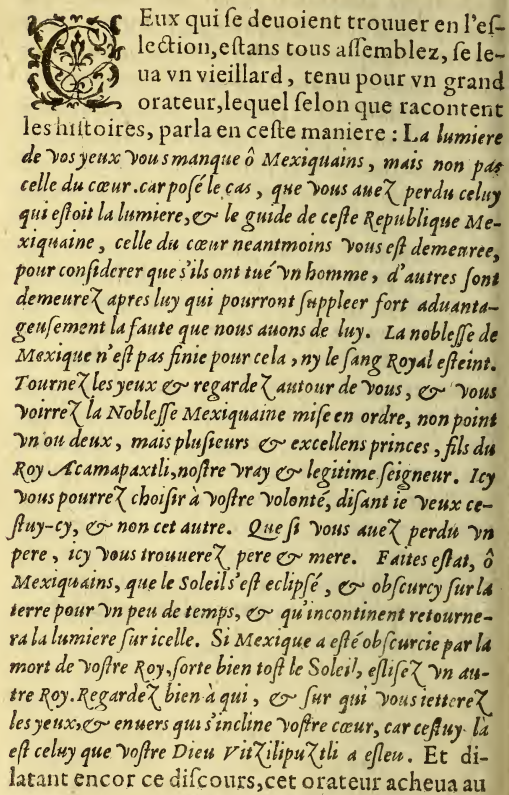 CEux qui ſe deuoient trouuer en l'eſ-
lection, eſtans tous aſſemblez, ſe le-
ua vn vieillard, tenu pour vn grand
orateur, lequel ſelon que racontent
les hiſtoires, parla en ceſte maniere : La lumiere
de vos yeux vous manque ô Mexiquains, mais non pas
celle du cœur. car poſé le cas, que vous auez perdu celuy
qui eſtoit la lumiere, & le guide de ceſte Republique Me-
xiquaine, celle du cœur neantmoins vous eſt demeuree,
pour conſiderer que s'ils ont tué vn homme, d'autres ſont
demeurez apres luy qui pourront ſuppleer fort aduanta-
geuſement la faute que nous auons de luy. La nobleſſe de
Mexique n'eſt pas finie pour cela, ny le ſang Royal eſteint.
Tournez les yeux & regardez autour de vous, & vous
voirrez la Nobleſſe Mexiquaine miſe en ordre, non point
vn ou deux, mais pluſieurs & excellens princes, fils du
Roy Acamapaxtli, noſtre vray & legitime ſeigneur. Icy
vous pourrez choiſir à voſtre volonté, diſant ie veux ce-
ſtuy-cy, & non cet autre. Que ſi vous auez perdu vn
pere, icy vous trouuerez pere & mere. Faites eſtat, ô
Mexiquains, que le Soleil s'eſt eclipſé, & obſcurcy ſur la
terre pour vn peu de temps, & qu'incontinent retourne-
ra la lumiere ſur icelle. Si Mexique a eſté obſcurcie par la
mort de voſtre Roy, ſorte bien toſt le Soleil, eſliſez vn au-
tre Roy. Regardez bien à qui, & ſur qui vous ietterez
les yeux, & enuers qui s'incline voſtre cœur, car ceſtuy-là
eſt celuy que voſtre Dieu Vitzilipuztli a eſleu. Et di-
latant encor ce diſcours, cet orateur acheua au